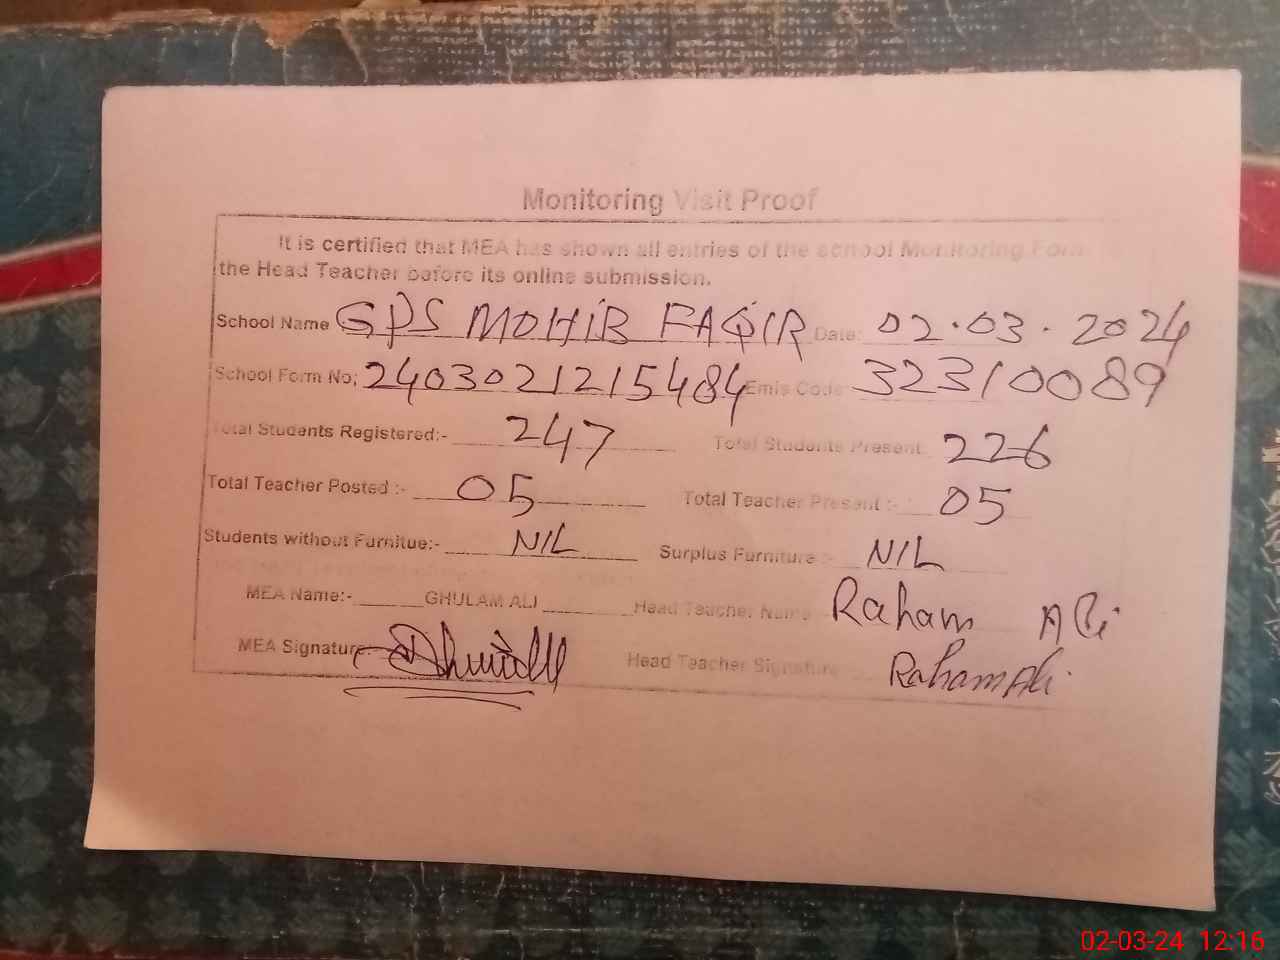 Monitoring Visit Proof
It is certified that MEA has shown all entries of the school Monitoring Form to
the Head Teacher before its online submission.
School Name GPS MOHIB FAQIR Date: 02.03.2024
School Form No; 2403021215484 Emis Code: 32310089
Total Students Registered:- 247 Total Students Present 226
Total Teacher Posted :- 05 Total Teacher Present :- 05
Students without Furnitue:- NIL Surplus Furniture :- NIL
MEA Name:- GHULAM ALI Head Teacher Name Raham Ali
MEA Signature Head Teacher Signature Raham Ali
02-03-24 12:16